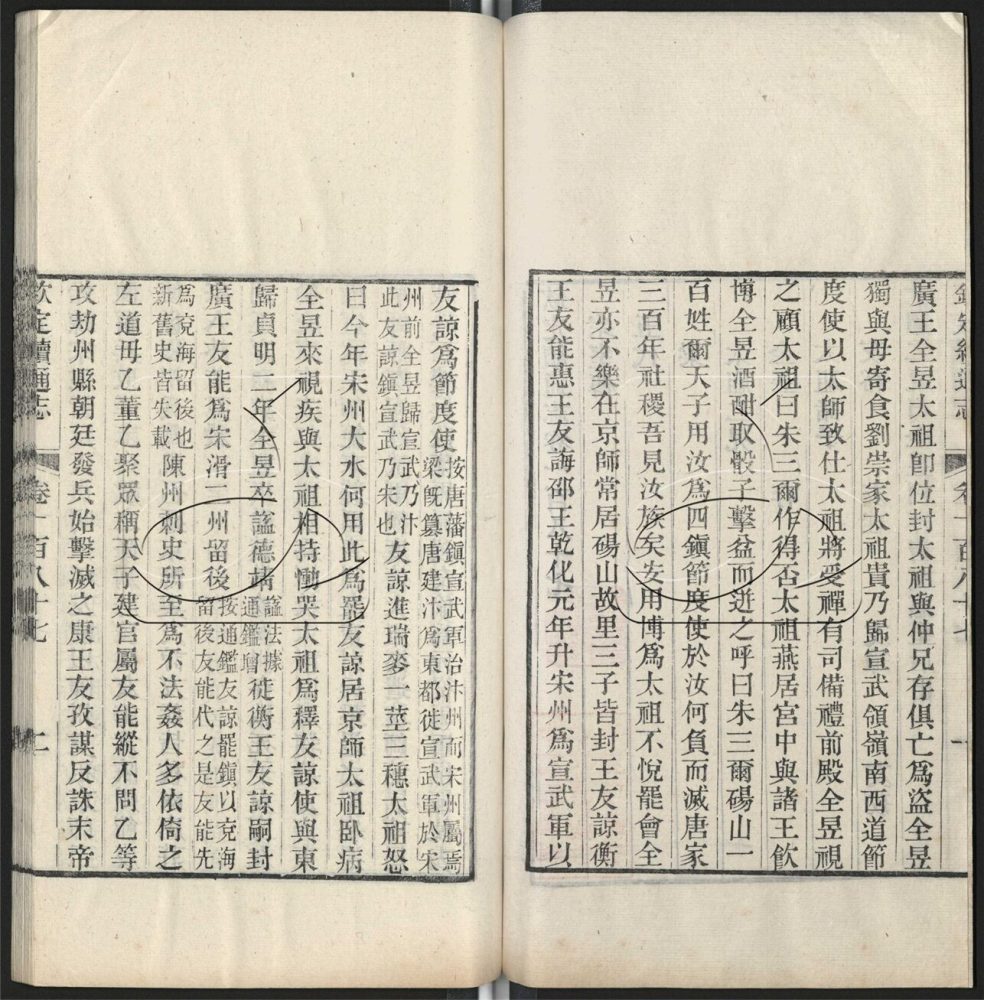 欽定續通志 卷一百八十七 一
廣王全昱太祖卽位封太祖與仲兄存俱亡爲盜全昱
獨與母寄食劉崇家太祖貴乃歸宣武領嶺南西道節
度使以太師致仕太祖將受禪有司備禮前殿全昱視
之顧太祖曰朱三爾作得否太祖燕居宮中與諸王飲
博全昱酒酣取骰子擊盆而迸之呼曰朱三爾碭山一
百姓爾天子用汝爲四鎮節度使於汝何負而滅唐家
三百年社稷吾見汝族矣安用博爲太祖不悅罷會全
昱亦不樂在京師常居碭山故里三子皆封王友諒衡
王友能惠王友誨邵王乾化元年升宋州爲宣武軍以
友諒爲節度使
按唐藩鎮宣武軍治汴州而宋州屬焉
梁旣簒唐建汴爲東都徙宣武軍於宋
州前全昱歸宣武乃汴
此友諒鎮宣武乃宋也
友諒進瑞麥一莖三穗太祖怒
曰今年宋州大水何用此爲罷友諒居京師太祖卧病
全昱來視疾與太祖相持慟哭太祖爲釋友諒使與東
歸貞明二年全昱卒諡德靖
諡法據
通鑑增
徙衡王友諒嗣封
廣王友能爲宋滑二州留後
按通鑑友諒罷鎮以兗海
留後友能代之是友能先
爲兗海留後也
新舊史皆失載
陳州刺史所至爲不法姦人多依倚之
左道毋乙董乙聚眾稱天子建官屬友能縱不問乙等
攻劫州縣朝廷發兵始擊滅之康王友孜謀反誅末帝
欽定續通志 卷一百八十七 二